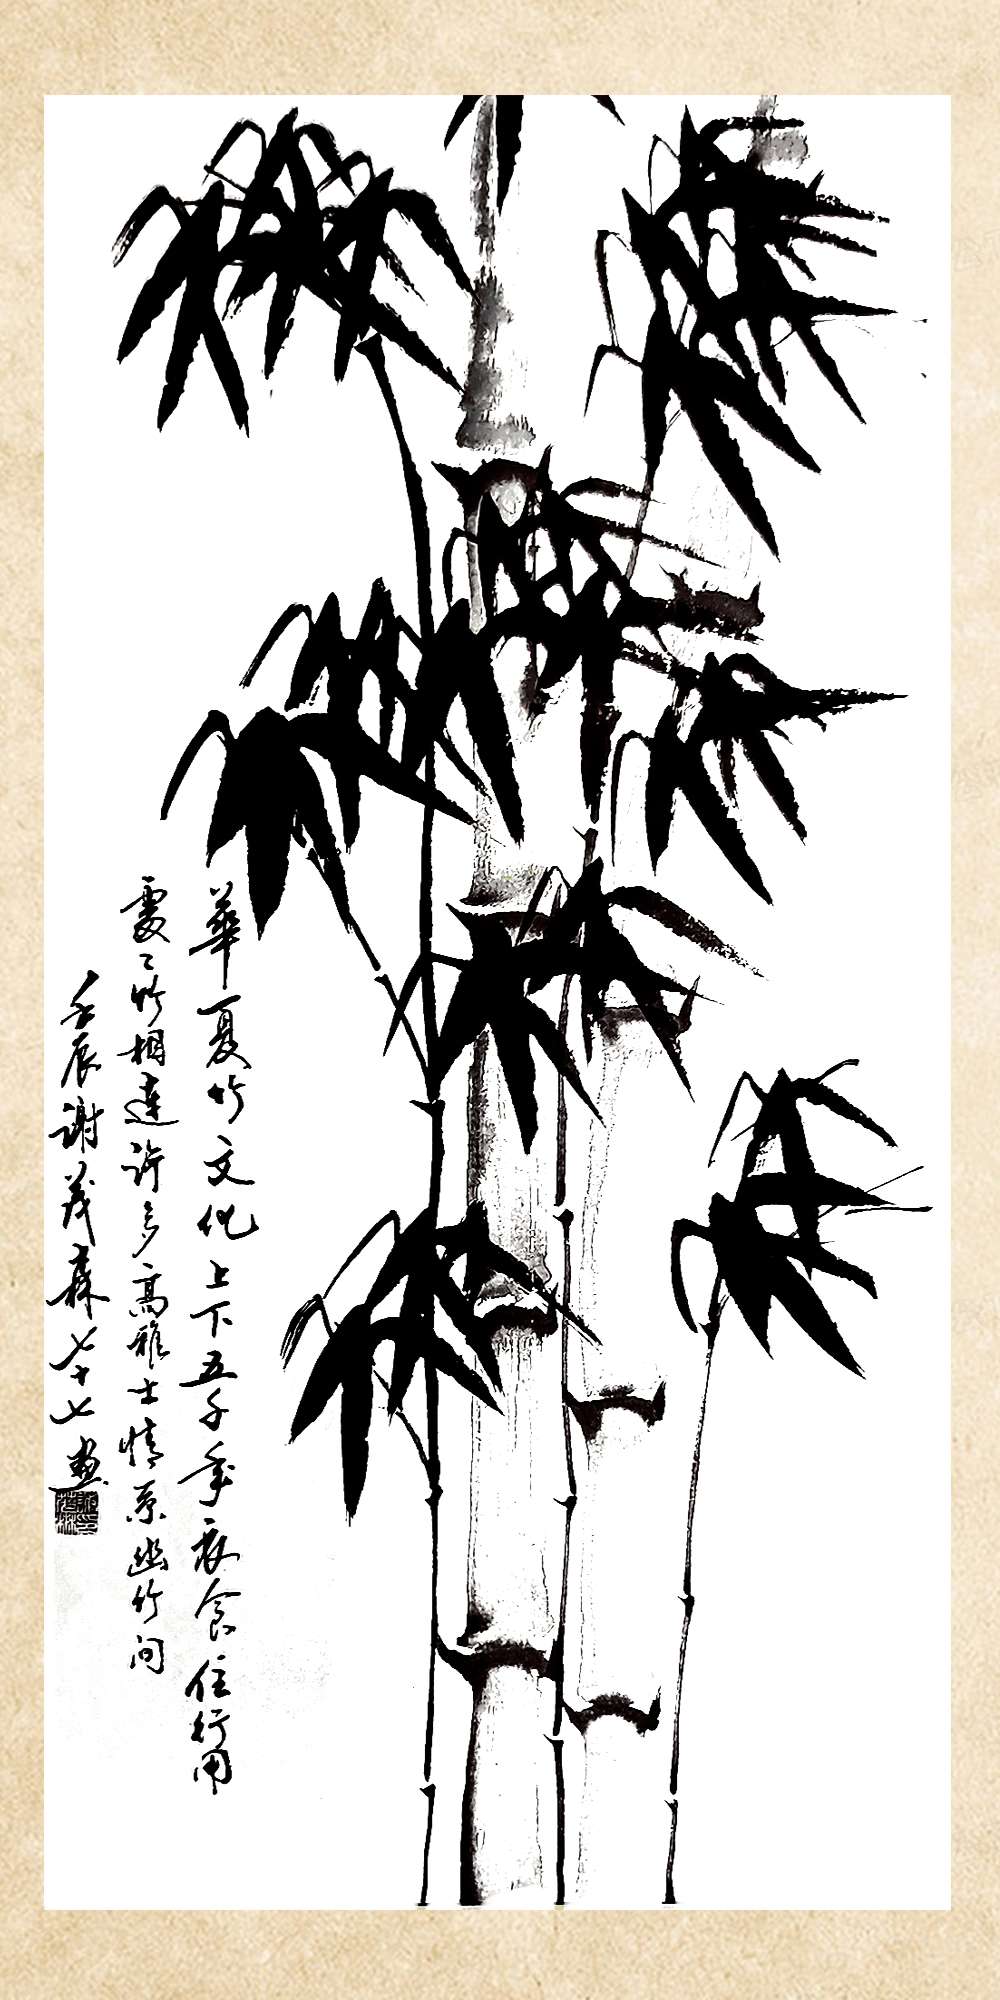 華夏竹文化上下五千年衣食住行用
處々竹相連许多高雅士情系幽竹间
壬辰谢茂森七十七画